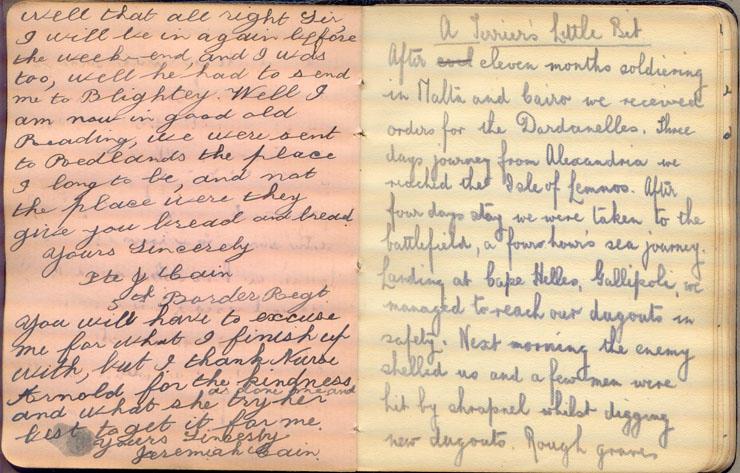 Well that all right Sir
I will be in again before
the week-end, and I was
too, well he had to send
me to Blightey. Well I
am now in good old
Reading, we were sent
to Redlands the place
I long to be, and not
the place were they
give you bread and bread
Yours Sincerely
Pte J. Cain
Border Regt
You will have to excuse
me for what I finish up
with, but I thank Nurse
Arnold for the kindness
and what she as done me and
try her
best to get it for me.
Yours Sincesly
Jeremiah Cain.
A Terrier's Little Bit
After eleven months soldiering
in Malta and Cairo we received
orders for the Dardanelles. Three
days journey from Alexandria we
reached the Isle of Lemnos. After
four days stay we were taken to the
battlefield, a fours hour's sea journey.
Landing at Cape Helles, Gallipoli, we
managed to reach our dugouts in
safety. Next morning the enemy
shelled us and a few men were
hit by shrapnel whilst digging
new dugouts. Rough graves